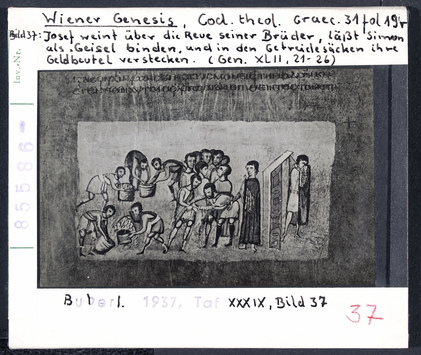 Wiener Genesis, Cod. theol. Graec. 31 fol 19r
Bild 37: Josef weint über die Reue seiner Brüder, läßt Simon
als Geisel binden, und in den Getreidesäcken ihre
Geldbeutel verstecken. (Gen. XLII, 21-26)
Inv.-Nr.
85586
1937, Taf XXXIX, Bild 37
37